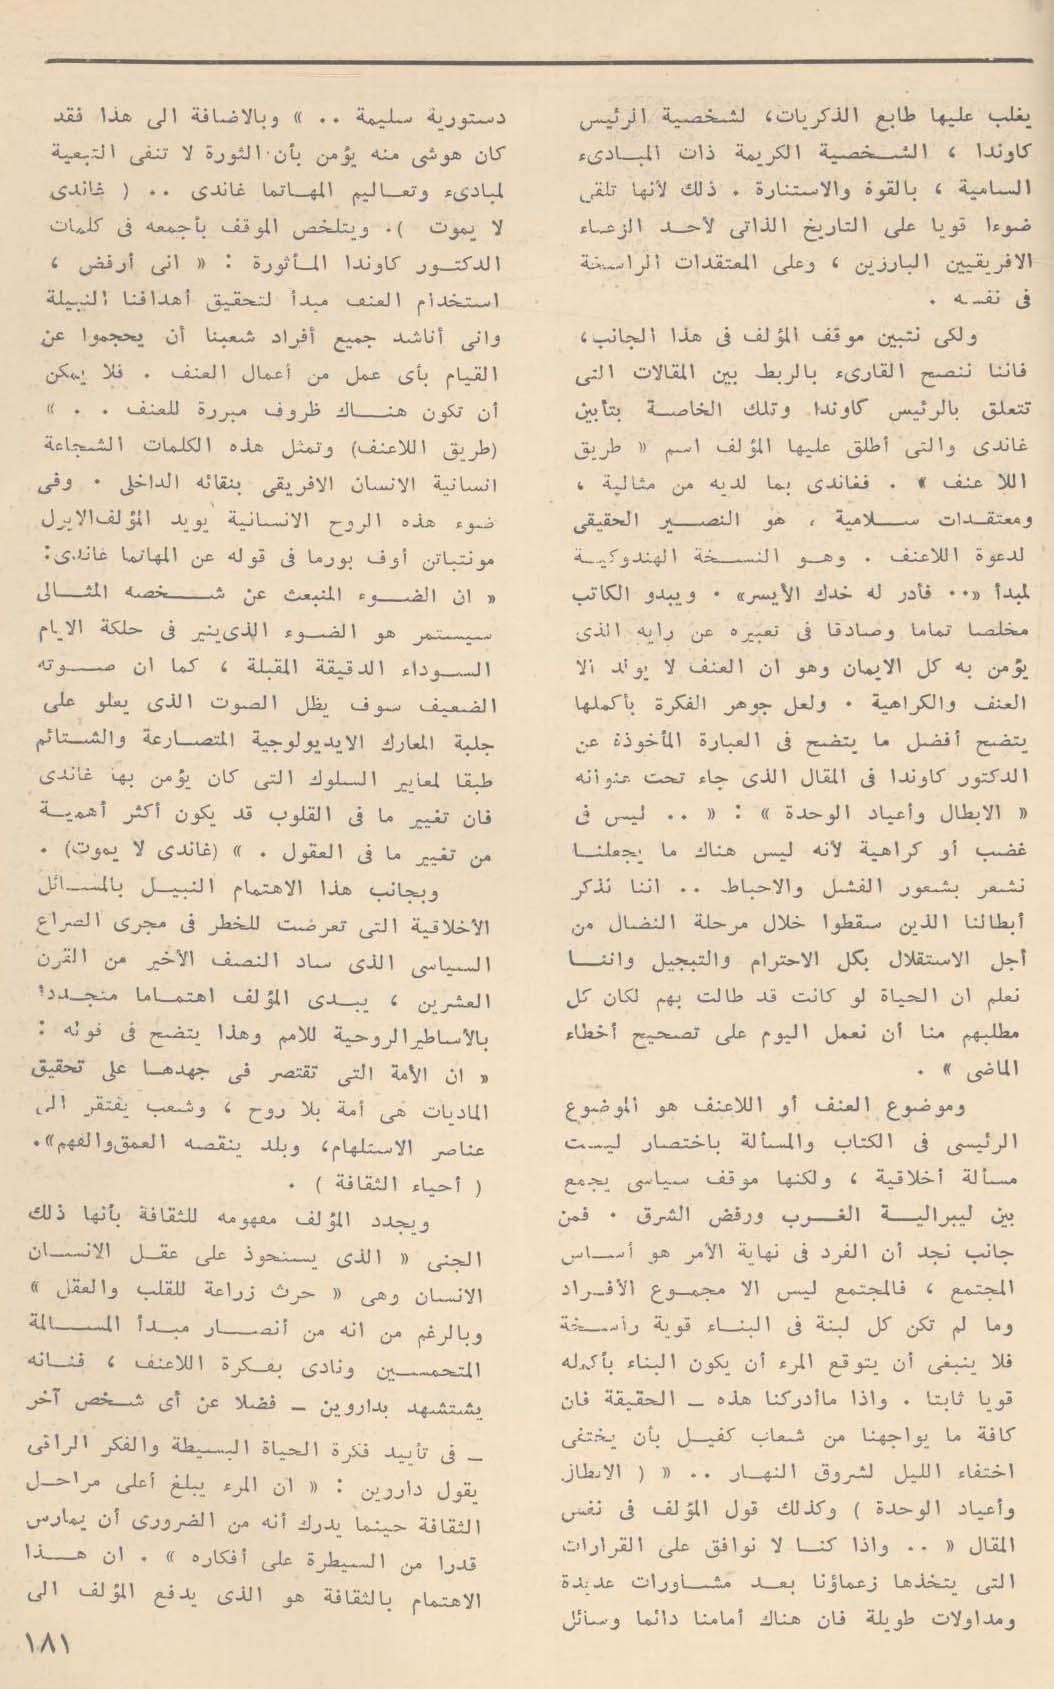 يغلب عليها طابع الذكريات، لشخصية الرئيس
كاوندا ، الشخصية الكريمة ذات المبادىء
السامية ، بالقوة والاستنارة . ذلك لأنها تلقى
ضوءا قويا على التاريخ الذاتى لأحد الزعماء
الافريقيين البارزين ، وعلى المعتقدات الراسخة
فى نفسه .
ولكى نتبين موقف المؤلف فى هذا الجانب،
فاننا ننصح القارىء بالربط بين المقالات التى
تتعلق بالرئيس كاوندا وتلك الخاصة بتأبين
غاندى والتى أطلق عليها المؤلف اسم « طريق
اللا عنف » . فغاندى بما لديه من مثالية ،
ومعتقدات سلامية ، هو النصير الحقيقى
لدعوة اللاعنف . وهو النسخة الهندوكية
لمبدأ «٠٠ فأدر له خدك الأيسر» . ويبدو الكاتب
مخلصا تماما وصادقا فى تعبيره عن رايه الذى
يؤمن به كل الايمان وهو ان العنف لا يولد الا
العنف والكراهية . ولعل جوهر الفكرة بأكملها
يتضح أفضل ما يتضح فى العبارة المأخوذة عن
الدكتور كاوندا فى المقال الذى جاء تحت عنوانه
« الابطال وأعياد الوحدة » : « .. ليس فى
غضب أو كراهية لأنه ليس هناك ما يجعلنا
نشعر بشعور الفشل والاحباط .. اننا نذكر
أبطالنا الذين سقطوا خلال مرحلة النضال من
أجل الاستقلال بكل الاحترام والتبجيل واننا
نعلم ان الحياة لو كانت قد طالت بهم لكان كل
مطلبهم منا أن نعمل اليوم على تصحيح أخطاء
الماضى » .
وموضوع العنف أو اللاعنف هو الموضوع
الرئيسى فى الكتاب والمسألة باختصار ليست
مسألة أخلاقية ، ولكنها موقف سياسى يجمع
بين ليبرالية الغرب ورفض الشرق . فمن
جانب نجد أن الفرد فى نهاية الأمر هو أساس
المجتمع ، فالمجتمع ليس الا مجموع الأفراد
وما لم تكن كل لبنة فى البناء قوية راسخة
فلا ينبغى أن يتوقع المرء أن يكون البناء بأكمله
قويا ثابتا . واذا ماأدركنا هذه ـ الحقيقة فان
كافة ما يواجهنا من شعاب كفيل بأن يختفى
اختفاء الليل لشروق النهار .. « ( الابطال
وأعياد الوحدة ) وكذلك قول المؤلف فى نفس
المقال « .. واذا كنا لا نوافق على القرارات
التى يتخذها زعماؤنا بعد مشاورات عديدة
ومداولات طويلة فان هناك أمامنا دائما وسائل
دستورية سليمة .. » وبالاضافة الى هذا فقد
كان هوشى منه يؤمن بأن الثورة لا تنفى التبعية
لمبادىء وتعاليم المهاتما غاندى .. ( غاندى
لا يموت ). ويتلخص الموقف بأجمعه فى كلمات
الدكتور كاوندا المأثورة : « انى أرفض ،
استخدام العنف مبدأ لتحقيق أهدافنا النبيلة
وانى أناشد جميع أفراد شعبنا أن يحجموا عن
القيام بأى عمل من أعمال العنف . فلا يمكن
أن تكون هناك ظروف مبررة للعنف . . »
(طريق اللاعنف) وتمثل هذه الكلمات الشجاعة
انسانية الانسان الافريقى بنقائه الداخلى . وفى
ضوء هذه الروح الانسانية يويد المؤلف الايرل
مونتباتن أوف بورما فى قوله عن المهاتما غاندى:
« ان الضوء المنبعث عن شخصه المثالى
سيستمر هو الضوء الذى ينير فى حلكة الايام
السوداء الدقيقة المقبلة ، كما ان صوته
الضعيف سوف يظل الصوت الذى يعلو على
جلبة المعارك الايديولوجية المتصارعة والشتائم
طبقا لمعايير السلوك التى كان يؤمن بها غاندى
فان تغيير ما فى القلوب قد يكون أكثر أهمية
من تغيير ما فى العقول . » (غاندى لا يموت) .
وبجانب هذا الاهتمام النبيل بالمسائل
الأخلاقية التى تعرضت للخطر فى مجرى الصراع
السياسى الذى ساد النصف الأخير من القرن
العشرين ، يبدى المؤلف اهتماما متجددا
بالأساطير الروحية للامم وهذا يتضح فى قوله :
« ان الأمة التى تقتصر فى جهدها على تحقيق
الماديات هى أمة بلا روح ، وشعب يفتقر الى
عناصر الاستلهام، وبلد ينقصه العمق والفهم».
( أحياء الثقافة ) .
ويجدد المؤلف مفهومه للثقافة بأنها ذلك
الجنى « الذى يستحوذ على عقل الانسان
الانسان وهى « حرث زراعة للقلب والعقل »
وبالرغم من انه من أنصار مبدأ المسالمة
المتحمسين ونادى بفكرة اللاعنف ، فنانه
يشتشهد بداروين ـ فضلا عن أى شخص آخر
ـ فى تأييد فكرة الحياة البسيطة والفكر الراقى
يقول داروين : « ان المرء يبلغ أعلى مراحل
الثقافة حينما يدرك أنه من الضرورى أن يمارس
قدرا من السيطرة على أفكاره » . ان هذا
الاهتمام بالثقافة هو الذى يدفع المؤلف الى
١٨١